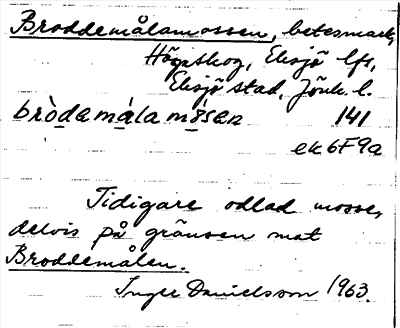 Broddemålamossen, betesmark,
Högaskog, Eksjö lfs,
Eksjö stad, Jönk. l.
bròdamåla mòsen 141
ek 6F9a
Tidigare odlad mosse,
delvis på gränsen mot
Broddemålen.
Inger Danielsson 1963.